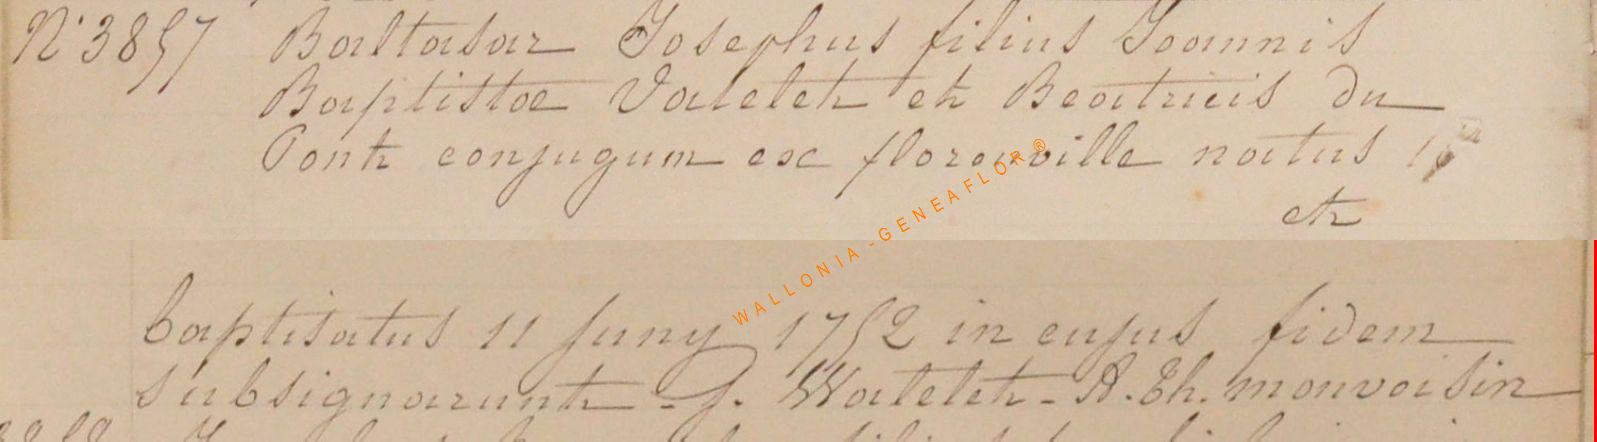 N° 3857 Baltasar Josephus filius Joannis
Baptistae Vatelet et Beatricis du
Pont conjugum ex florenville natus
et
WALLONIA-GENEAFLOR®
baptisatus 11 juny 1752 in cujus fidem
subsignarunt - J. Watelet - A. Th. monvoisin